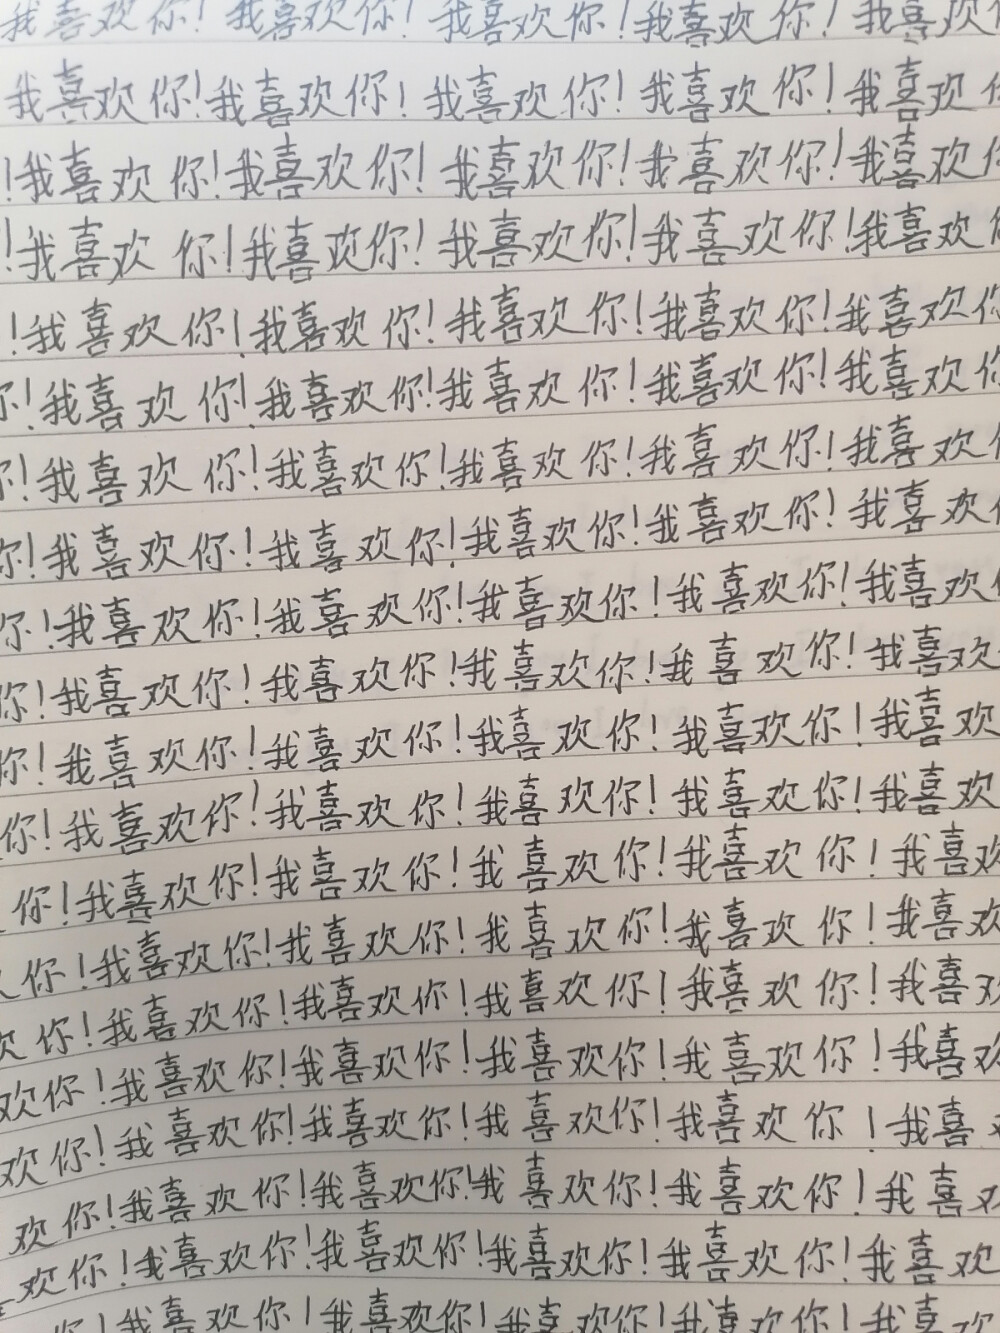 我喜欢你!我喜欢你!我喜欢你!我喜欢你!我喜欢
我喜欢你!我喜欢你!我喜欢你!我喜欢你!我喜欢你
!我喜欢你!我喜欢你!我喜欢你!我喜欢你!我喜欢你
!我喜欢你!我喜欢你!我喜欢你!我喜欢你!我喜欢你
!我喜欢你!我喜欢你!我喜欢你!我喜欢你!我喜欢你
你!我喜欢你!我喜欢你!我喜欢你!我喜欢你!我喜欢你
你!我喜欢你!我喜欢你!我喜欢你!我喜欢你!我喜欢你
你!我喜欢你!我喜欢你!我喜欢你!我喜欢你!我喜欢你
你!我喜欢你!我喜欢你!我喜欢你!我喜欢你!我喜欢你
你!我喜欢你!我喜欢你!我喜欢你!我喜欢你!我喜欢
你!我喜欢你!我喜欢你!我喜欢你!我喜欢你!我喜欢
你!我喜欢你!我喜欢你!我喜欢你!我喜欢你!我喜欢
你!我喜欢你!我喜欢你!我喜欢你!我喜欢你!我喜欢
你!我喜欢你!我喜欢你!我喜欢你!我喜欢你!我喜欢
欢你!我喜欢你!我喜欢你!我喜欢你!我喜欢你!我喜欢
欢你!我喜欢你!我喜欢你!我喜欢你!我喜欢你!我喜欢
欢你!我喜欢你!我喜欢你!我喜欢你!我喜欢你!我喜
欢你!我喜欢你!我喜欢你!我喜欢你!我喜欢你!我喜欢
欢你!我喜欢你!我喜欢你!我喜欢你!我喜欢你!我喜欢
你!我喜欢你!我喜欢你!我喜欢你!我喜欢你!我喜欢